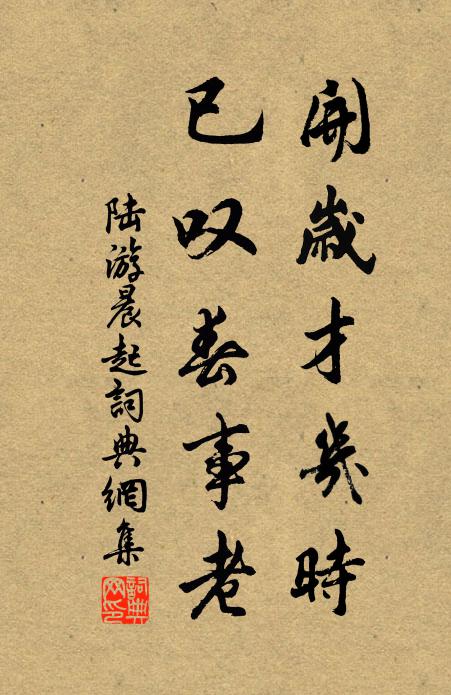 開歲才幾時
已叹春事老
陆游晨起詞典網集
詞典網印